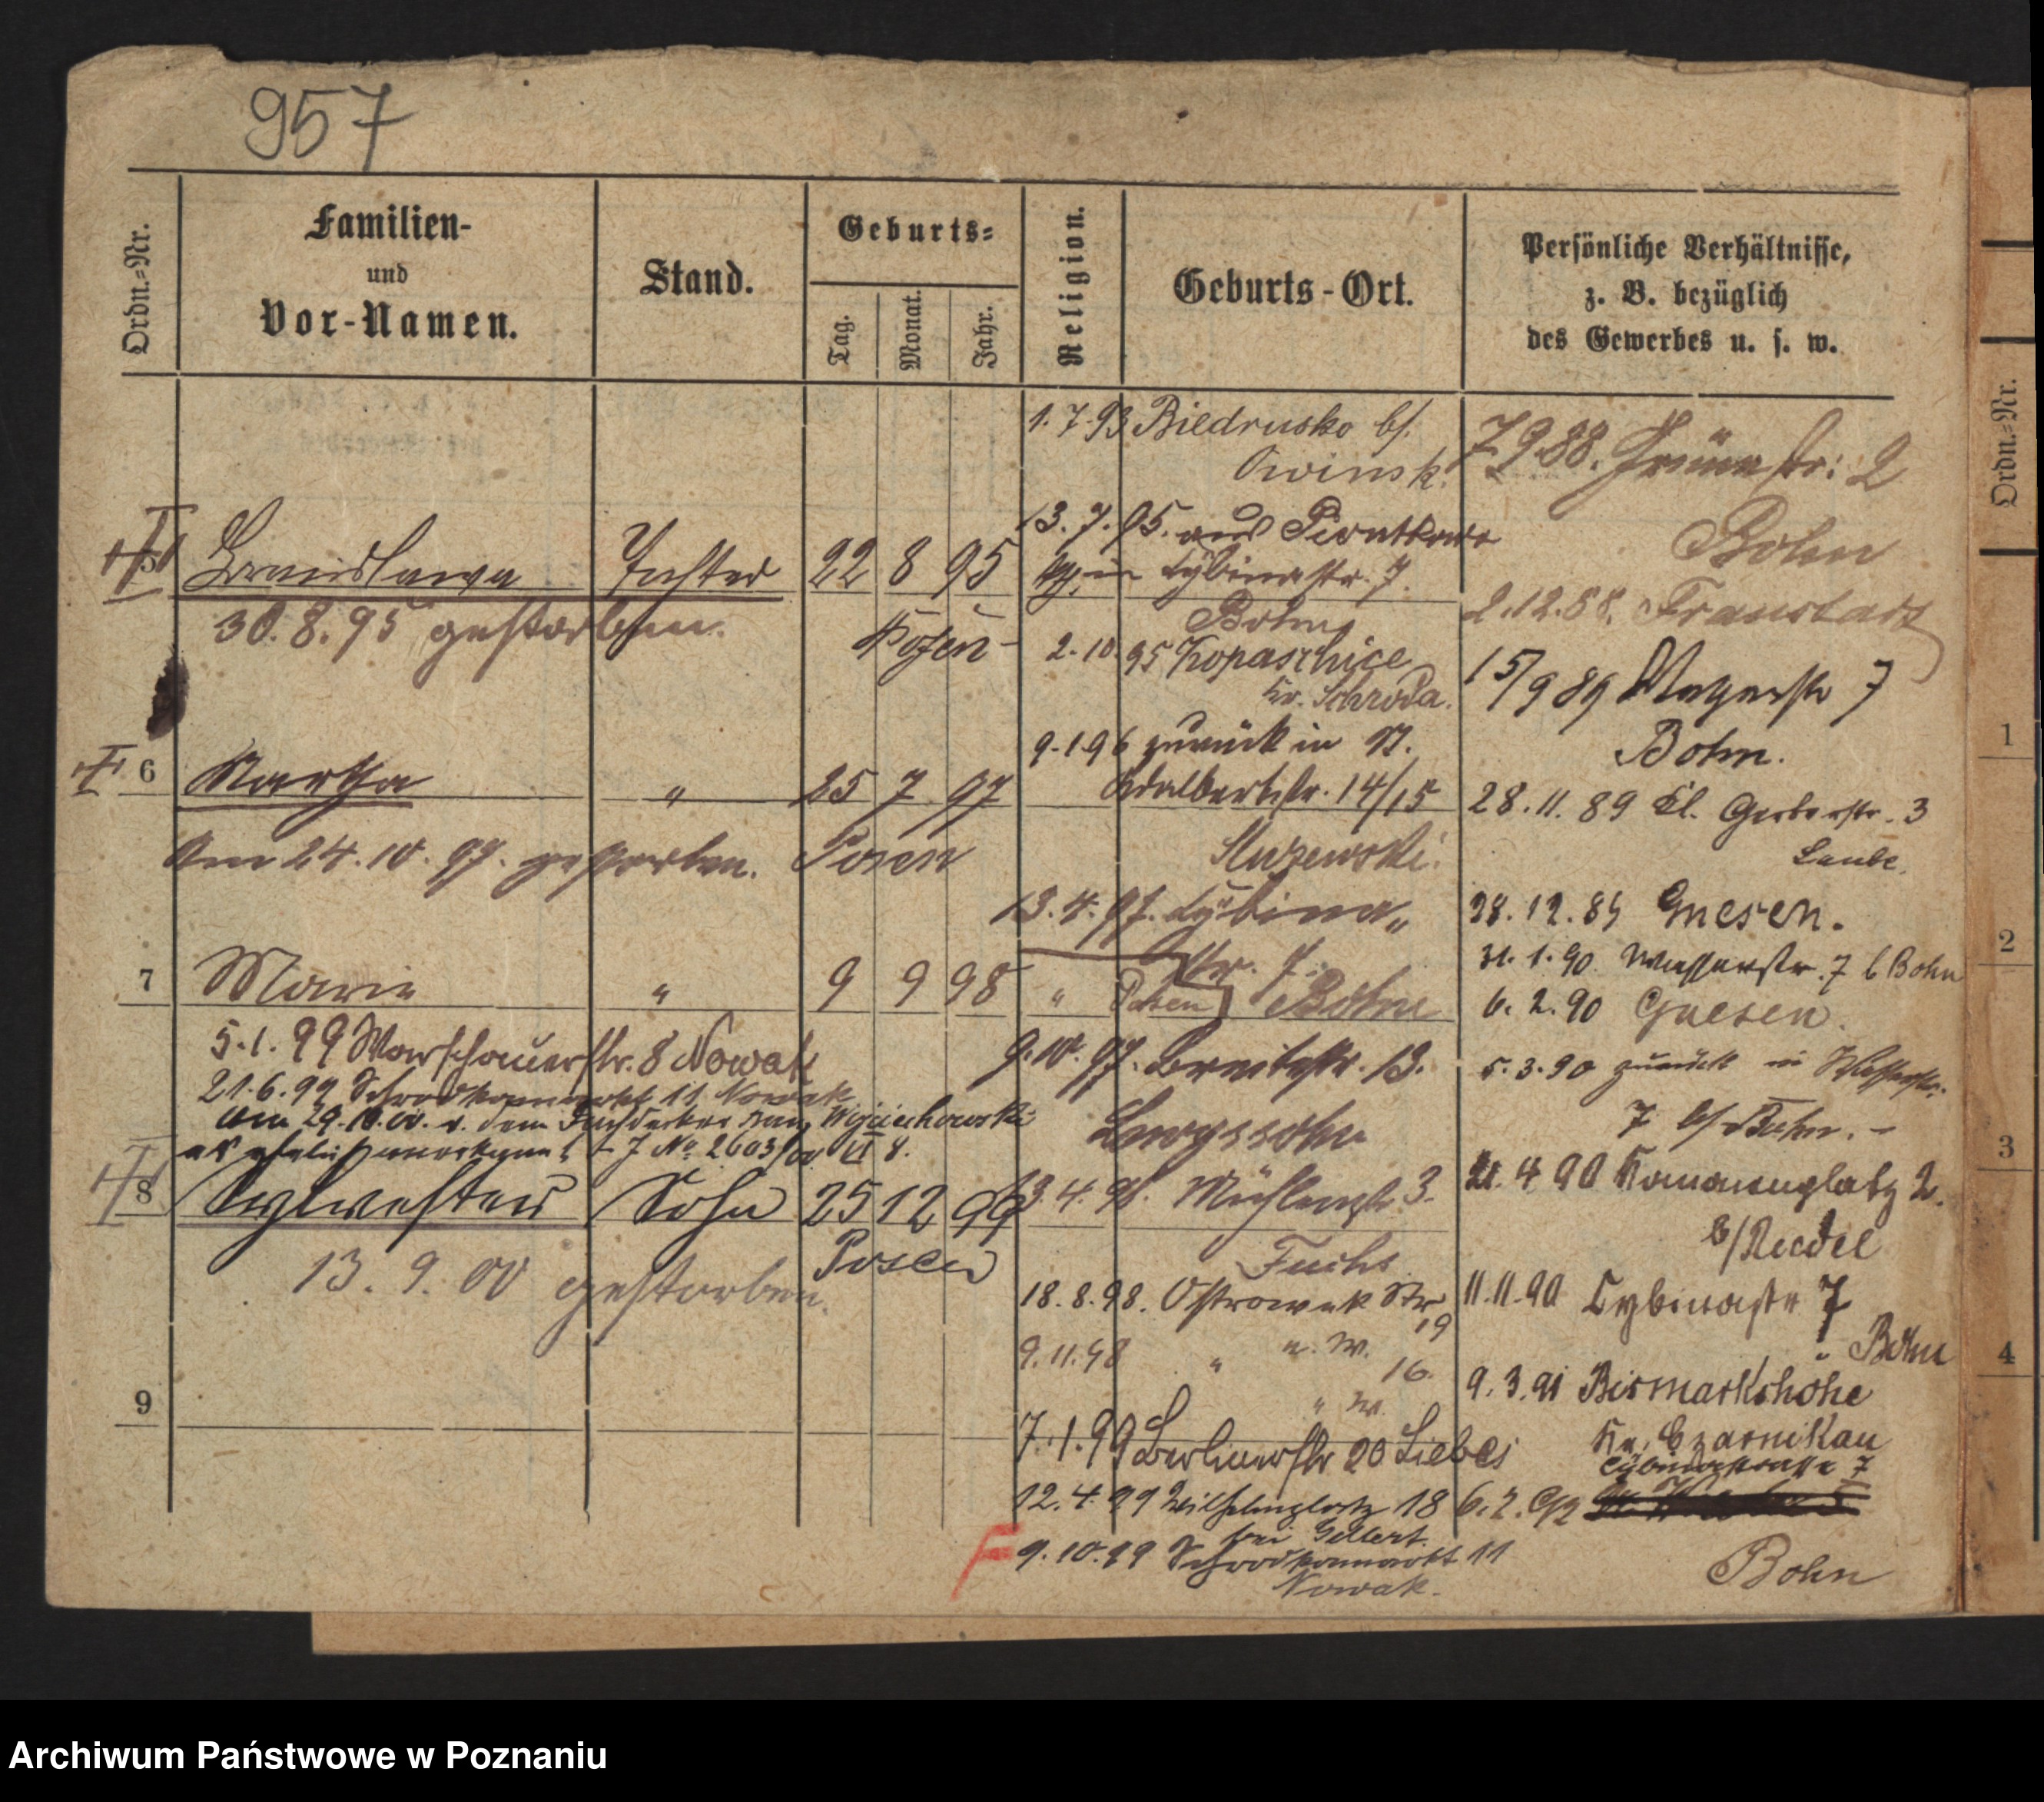 957
Ordn.=Nr.
Familien-
und
Vor-Namen.
Stand.
Geburts=
Tag.
Monat.
Jahr.
Religion.
Geburts-Ort.
Persönliche Verhältnisse,
z. B. bezüglich
des Gewerbes u. s. w.
5 Bronislawa Tochter 22 8 95
30.8.95 gestorben. Posen
6 Martha " 25 7 97
Am 24.10.97. gestorben. Posen
7 Marie " 9 9 98 " Posen
5.1.99 Warschauerstr. 8 Nowak
21.6.99 Schrodkamarkt 11 Nowak
Am 29. v. dem Dachdecker Wojciechowski
als ehelich anerkannt J No 2603/00 VI 8.
8 Sylvester Sohn 25 12 99
Posen
13.9.00 gestorben.
9
1.7.93 Biedrusko b/.
Owinsk.
13.7.95. aus Piontkowo
in Cybinastr. 7.
Bohm
2.10.95 Kopaschice
Kr. Schroda.
9.1.96 zurück in St.
Adalbertstr. 14/15
13.4.97. Cybina"
str. 7.
Bohm
9.10.97. Breitestr. 13.
3.4.98. Mühlenstr 3.
Fuchs
18.8.98. Ostrowek Str
19
9.11.98 " n. W.
16.
" W.
7.1.99 Berlinerstr 20 Liebes
12.4.99 Wilhelmplatz 18
bei Gellert.
F 9.10.99 Schrodkamarkt 11
Nowak.
7.9.88. Grünestr: 2
Bohn
2.12.88. Fraustadt
15/9 89 7
Bohm.
28.11.89 Kl. Gerberstr. 3
Laube.
28.12.89 Gnesen.
31.1.90 Wasserstr. 7 b Bohn
6.2.90 Gnesen.
5.3.90 zurück in Wasserstr.
7 b/ Bohm. -
21.4 90 Kanonenplatz 2.
b/ Riedel
11.11.90 Cybinastr 7
Bohm
9.3.91 Bismarkshöhe
Kr. Czarnikau
Cybinastrasse 7
6.2.92
Bohn
Ordn.=Nr.
1
2
3
4
Archiwum Państwowe w Poznaniu